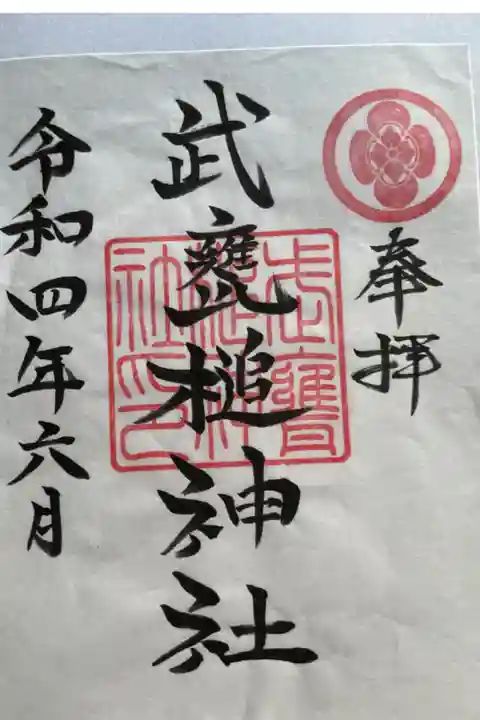 奉拝
武甕槌神社
令和四年六月